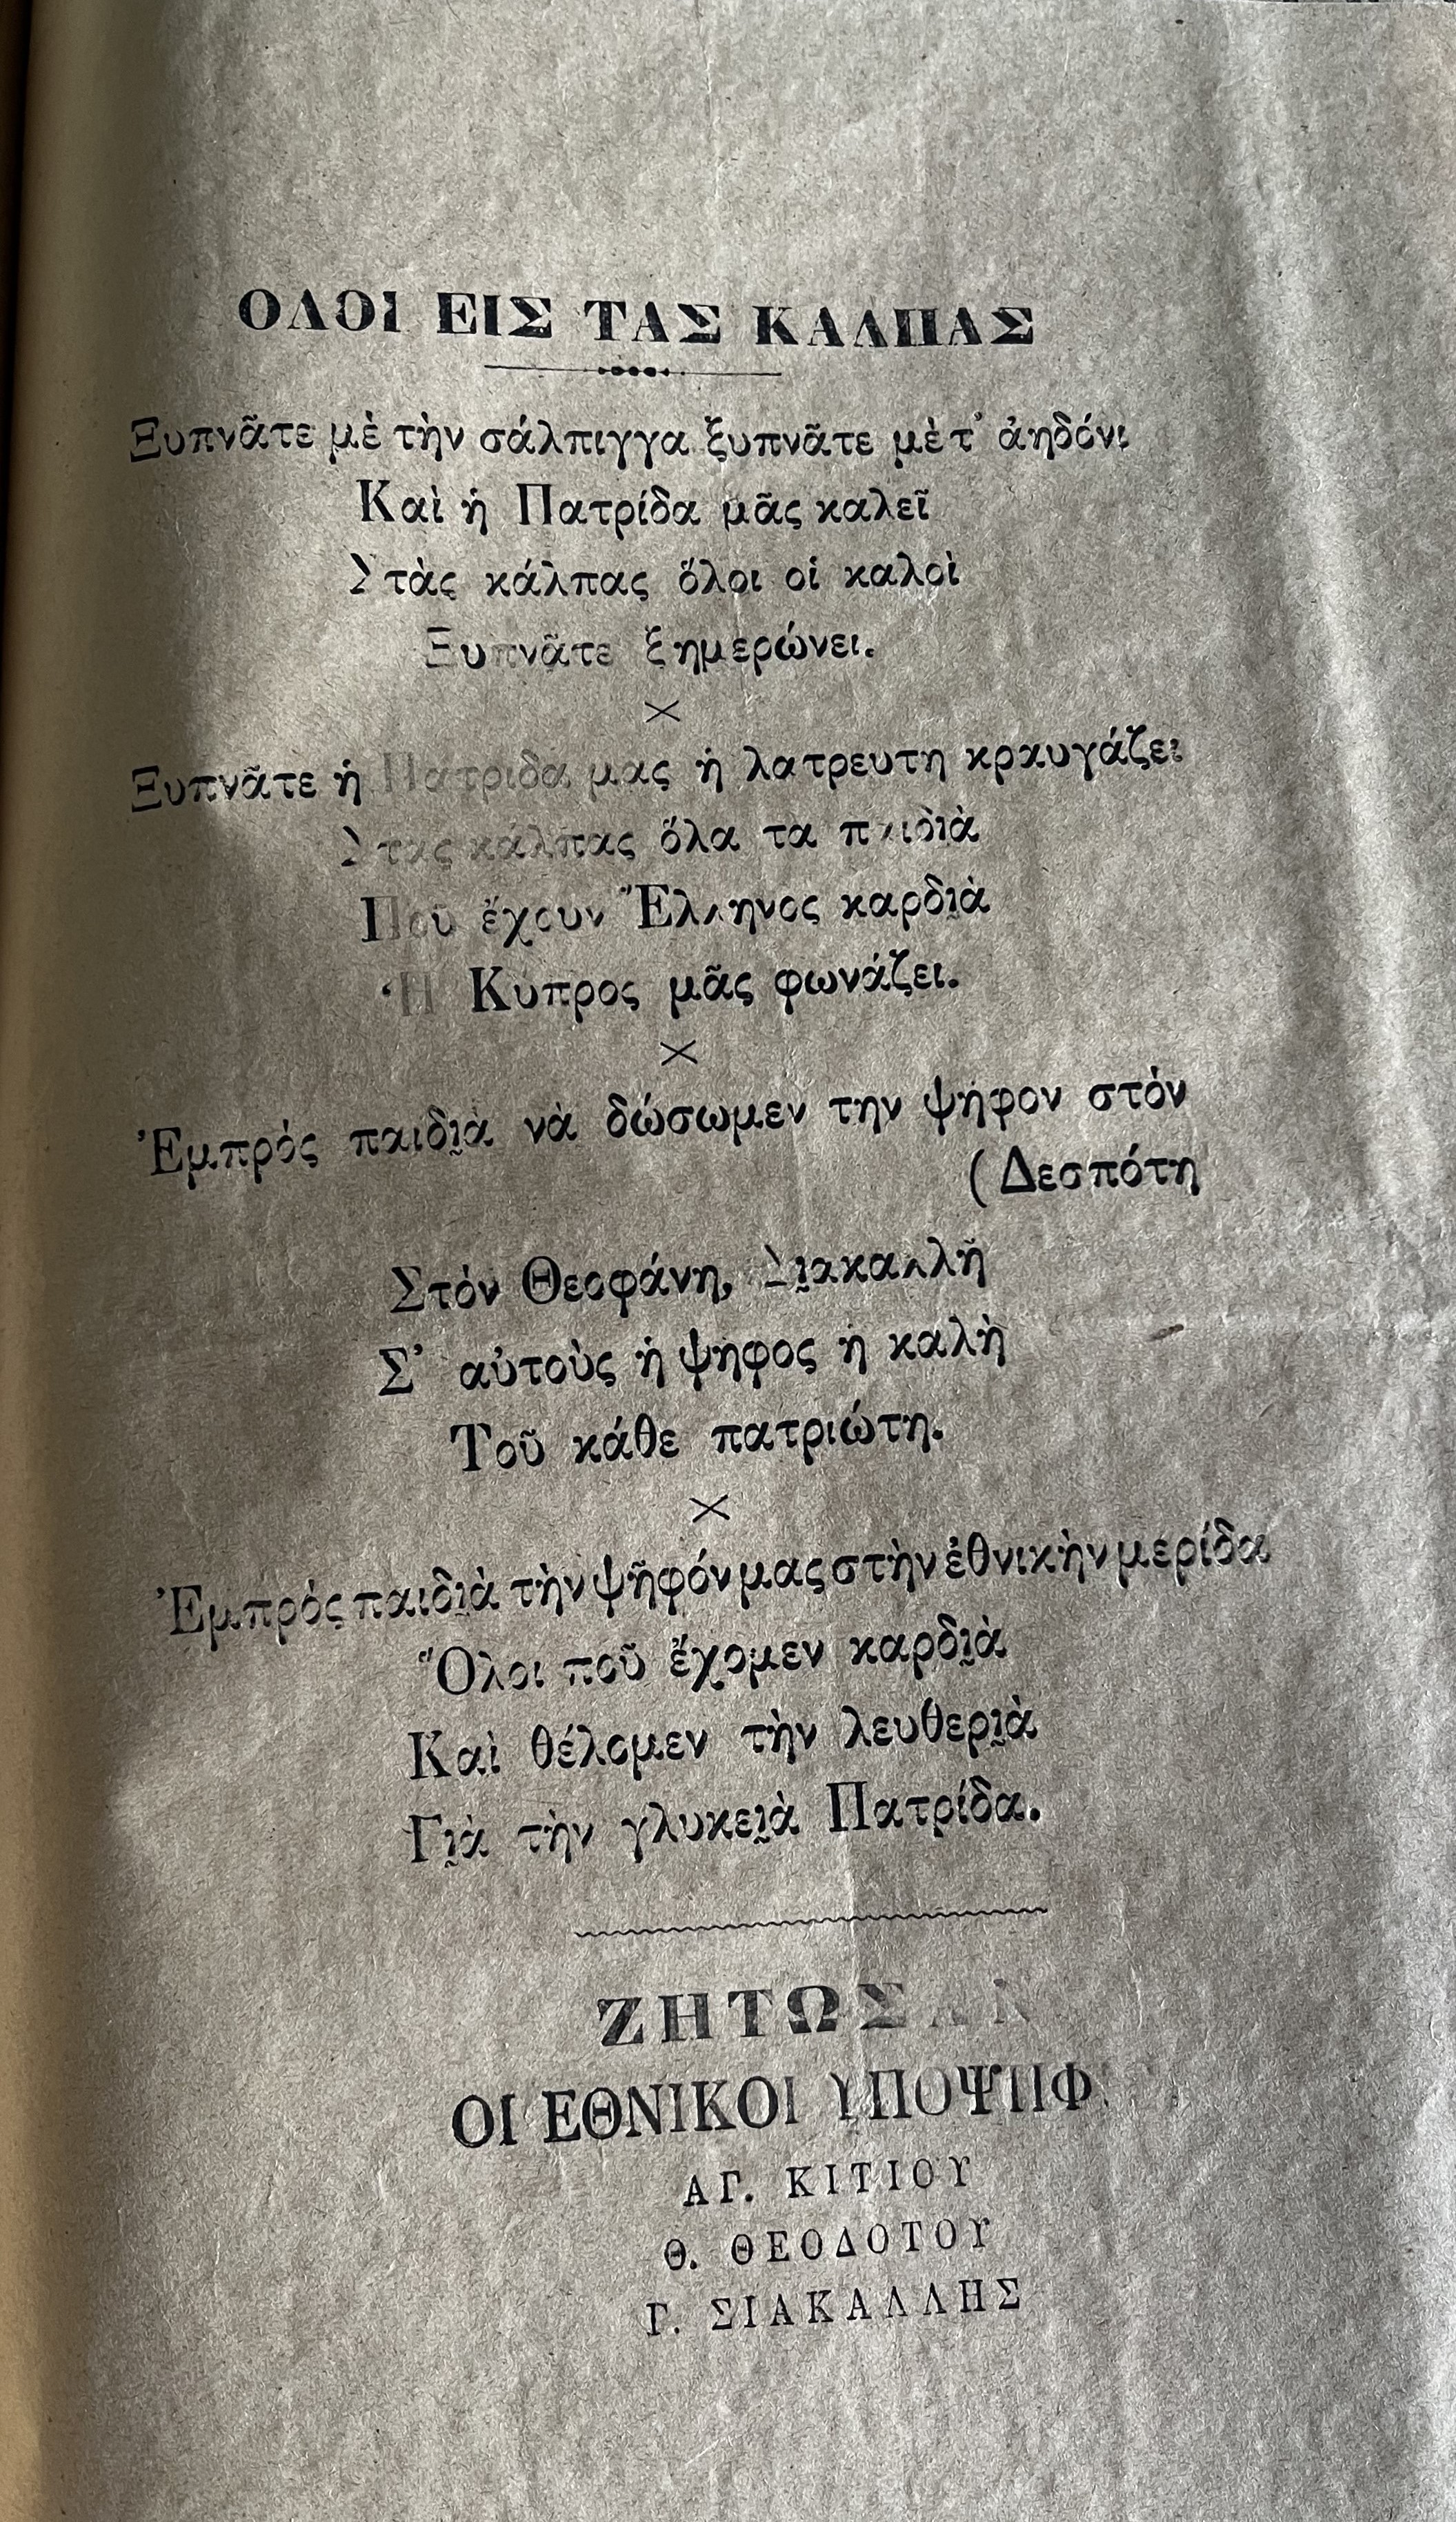 ΟΛΟΙ ΕΙΣ ΤΑΣ ΚΑΛΠΑΣ
Ξυπνᾶτε μὲ τὴν σάλπιγγα ξυπνᾶτε μὲ τ' ἀηδόνι
Καὶ ἡ Πατρίδα μᾶς καλεῖ
Στὰς κάλπας ὅλοι οἱ καλοὶ
Ξυπνᾶτε ξημερώνει.
×
Ξυπνᾶτε ἡ Πατριδα μας ἡ λατρευτη κραυγάζει
Στας κάλπας ὅλα τα παιδιὰ
Ποῦ ἔχουν Ἕλληνος καρδιὰ
Ἡ Κυπρος μᾶς φωνάζει.
×
Ἐμπρός παιδιὰ νὰ δώσωμεν την ψήφον στόν
(Δεσπότη
Στόν Θεοφάνη, Σιακαλλῆ
Σ' αὐτοὺς ἡ ψηφος ἡ καλὴ
Τοῦ κάθε πατριώτη.
×
Ἐμπρός παιδιὰ τὴν ψῆφόν μας στὴν ἐθνικὴν μερίδα
Ὅλοι ποῦ ἔχομεν καρδιὰ
Καὶ θέλομεν τὴν λευθεριὰ
Γιὰ τὴν γλυκειὰ Πατρίδα.
ΖΗΤΩΣΑΝ
ΟΙ ΕΘΝΙΚΟΙ
ΑΓ. ΚΙΤΙΟΥ
Θ. ΘΕΟΔΟΤΟΥ
Γ. ΣΙΑΚΑΛΛΗΣ